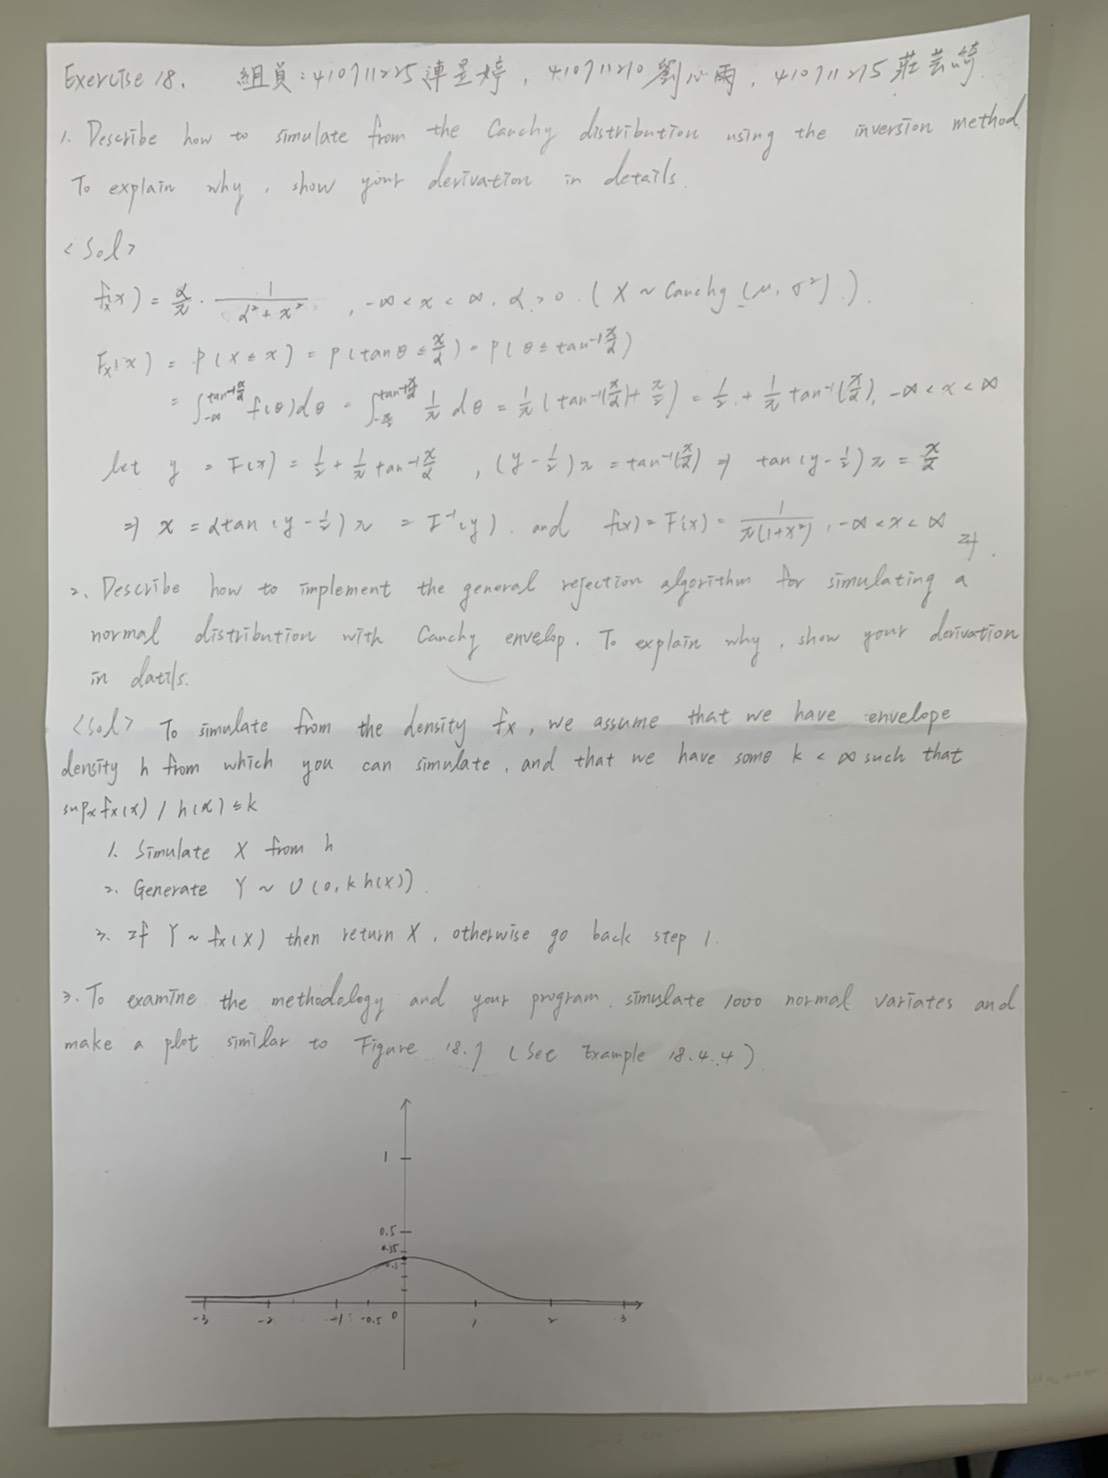 Exercise 18. 組員: 410711225 連昱婷, 410711210 劉心雨, 410711215 莊芸綺
1. Describe how to simulate from the Cauchy distribution using the inversion method.
To explain why, show your derivation in details.
<Sol>
fx(x) = α/π · 1/(α²+x²), -∞ < x < ∞, α > 0. (X ~ Cauchy (μ, σ²)).
Fx(x) = P(X ≤ x) = P(tanθ ≤ x/α) = P(θ ≤ tan⁻¹ x/α)
= ∫_{-∞}^{tan⁻¹ x/α} f(θ)dθ = ∫_{-π/2}^{tan⁻¹ x/α} 1/π dθ = 1/π (tan⁻¹(x/α) + π/2) = 1/2 + 1/π tan⁻¹(x/α), -∞ < x < ∞
let y = F(x) = 1/2 + 1/π tan⁻¹ x/α, (y - 1/2)π = tan⁻¹(x/α) ⇒ tan(y - 1/2)π = x/α
⇒ x = αtan(y - 1/2)π = F⁻¹(y). and f(x) = F(x) = 1/(π(1+x²)), -∞ < x < ∞
2. Describe how to implement the general rejection algorithm for simulating a
normal distribution with Cauchy envelop. To explain why, show your derivation
in datils.
<Sol> To simulate from the density fx, we assume that we have envelope
density h from which you can simulate, and that we have some k < ∞ such that
supx fx(x) / h(x) ≤ k
1. Simulate X from h
2. Generate Y ~ U(0, k h(X))
3. If Y ~ fx(X) then return X, otherwise go back step 1.
3. To examine the methodology and your program, simulate 1000 normal variates and
make a plot similar to Figure 18.7 (See Example 18.4.4)
1
0.5
-3 -2 -1 -0.5 0 1 2 3